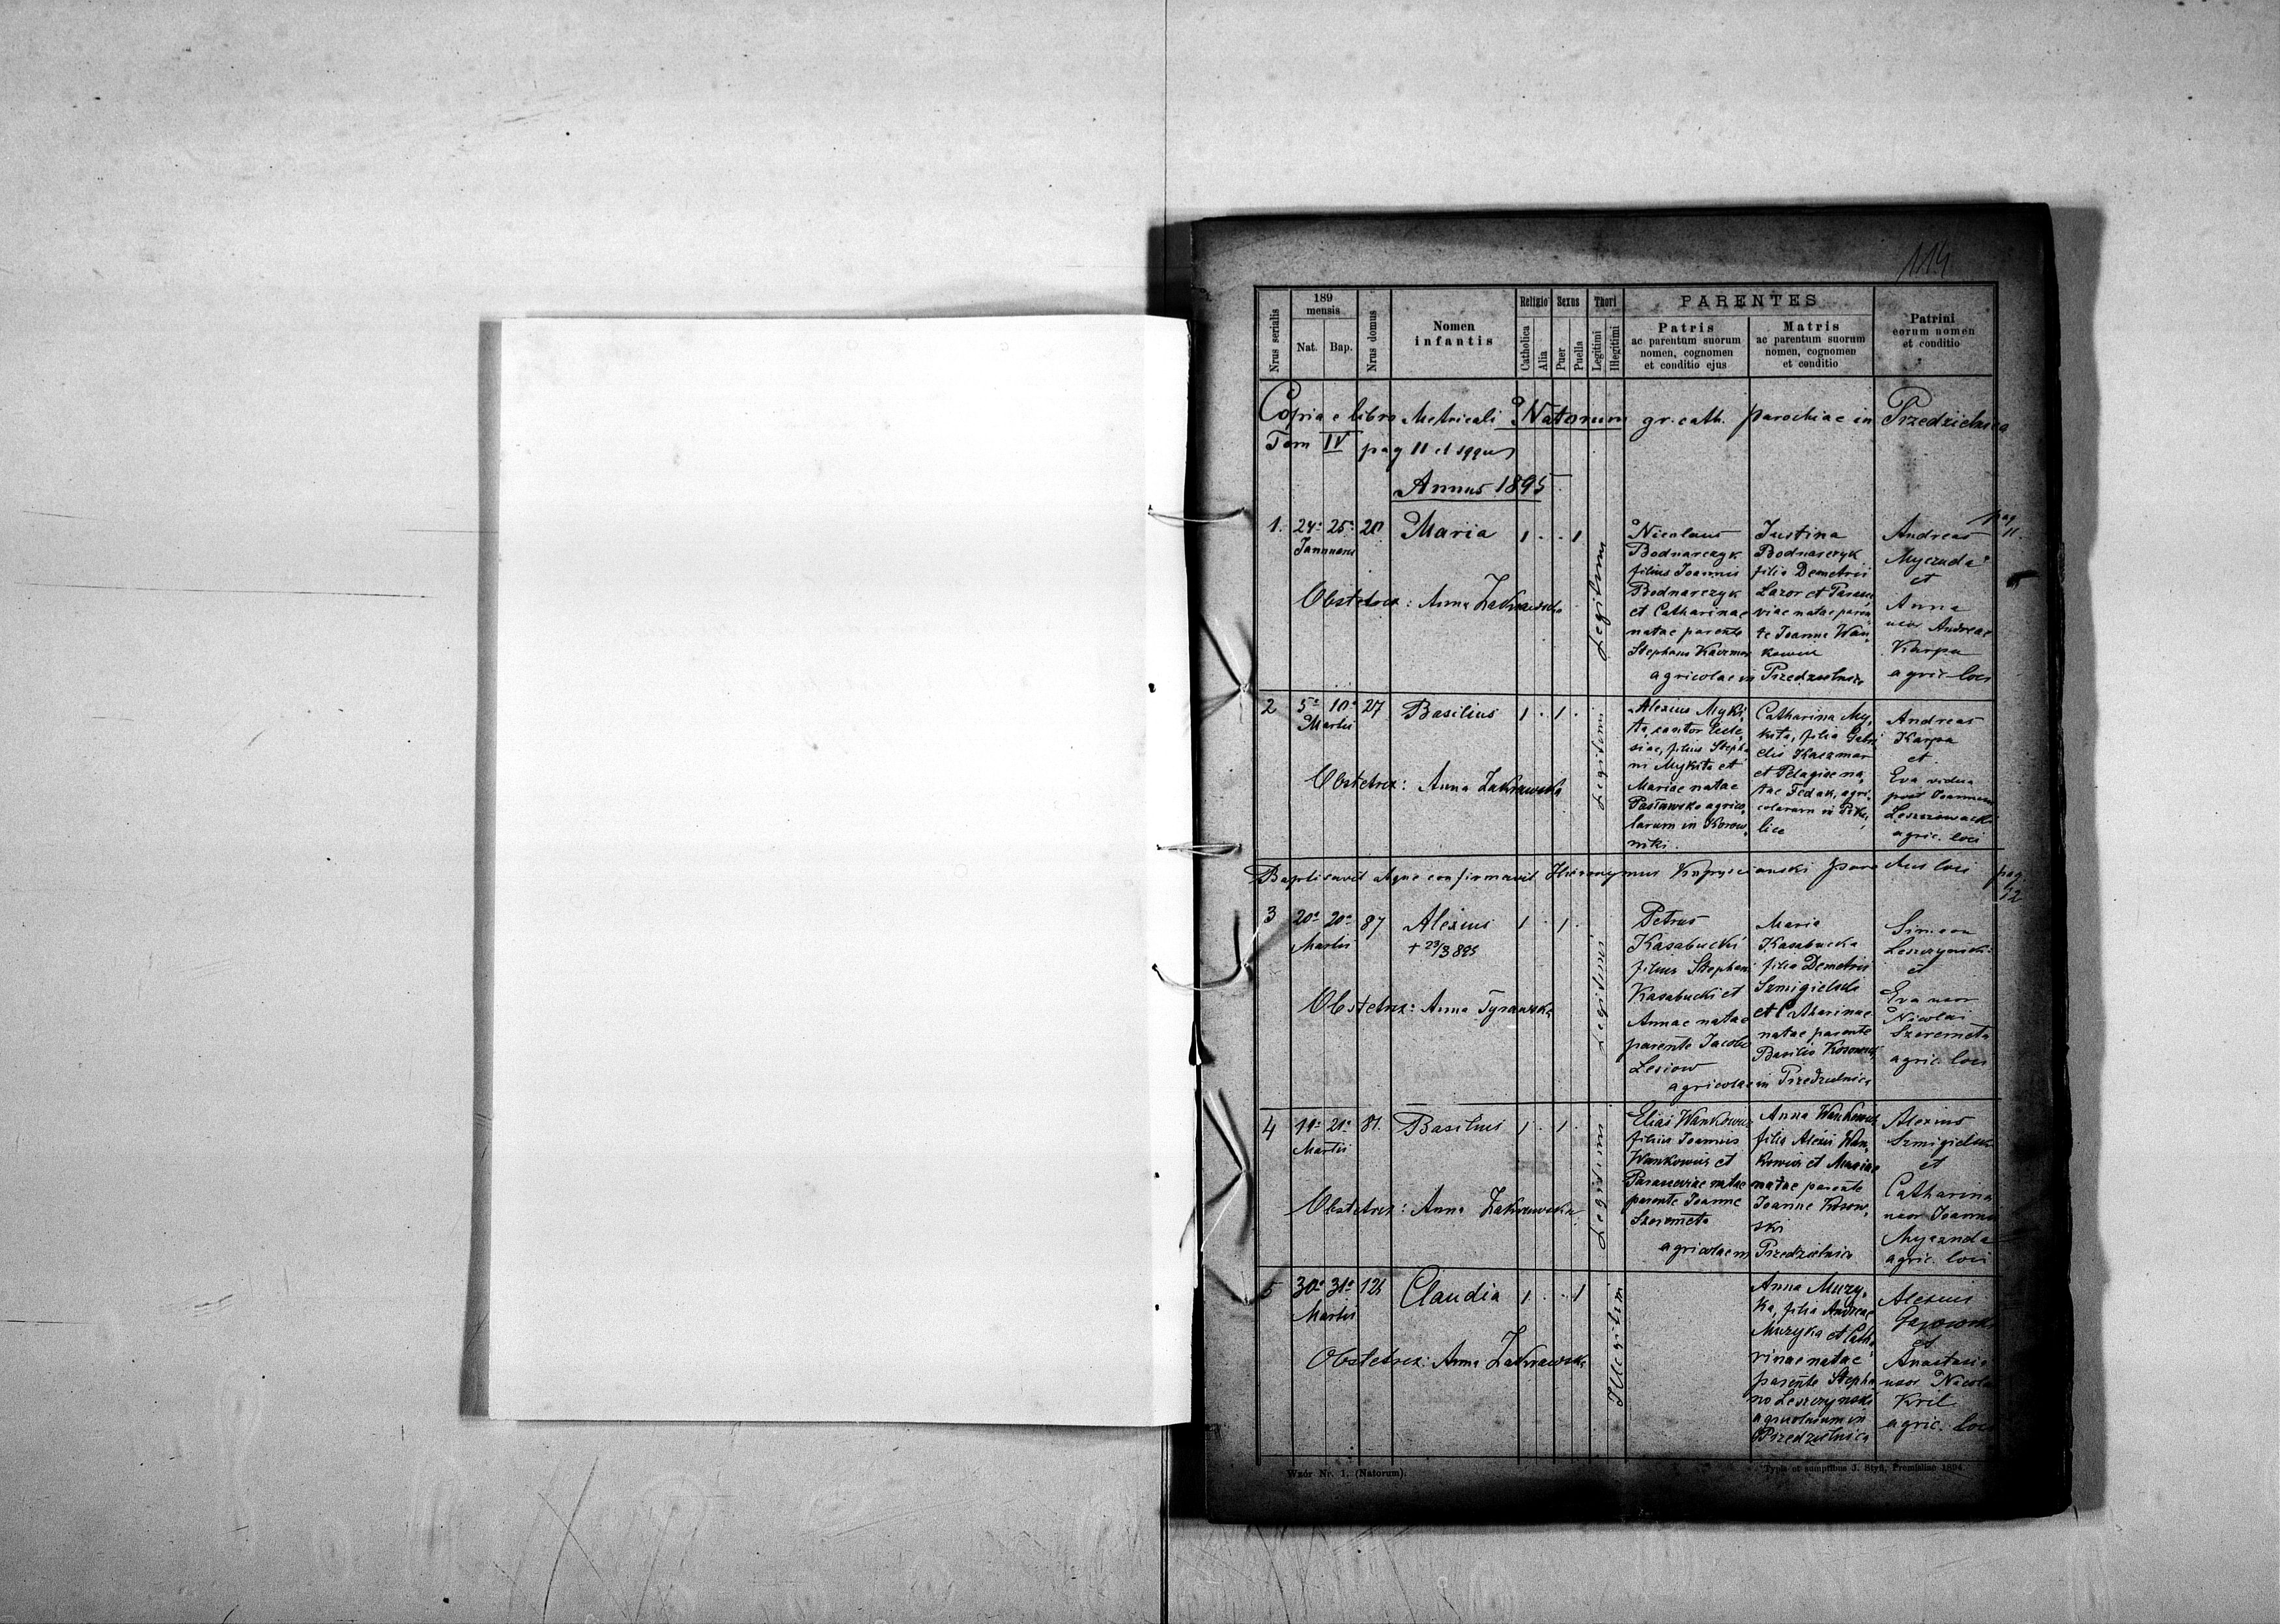 114
Nrus serialis
189
mensis
Nat.
Bap.
Nrus domus
Nomen
infantis
Religio
Catholica
Alia
Sexus
Puer
Puella
Thori
Legitimi
Illegitimi
PARENTES
Patris
ac parentum suorum
nomen, cognomen
et conditio ejus
Matris
ac parentum suorum
nomen, cognomen
et conditio
Patrini
eorum nomen
et conditio
Copia e libro Metricali Natorum gr. cath. parochiae in Przedzielnica
Tom IV pag 11 et sqqu
Annus 1895
pag 11.
1. 24a 25a 20 Maria 1 . . 1
Januarii
Obstetrix: Anna Zakrzewska
Legitimi
Nicolaus
Bodnarczyk
filius Joannis
Bodnarczyk
et Catharinae
natae parente
Stephano Kaczmar
agricolae in Przedzielnica
Justina
Bodnarczyk
filia Demetrii
Lazor et Parasce
viae natae paren
te Joanne Wan
kowicz
Andreas
Myczuda
et
Anna
uxor Andreae
Karpa
agric. loci
2 5a 10a 27 Basilius 1 . 1 .
Martii
Obstetrix: Anna Zakrzewska
Legitimi
Alexius Myki
ta, cantor Eccle
siae, filius Stepha
ni Mykita et
Mariae natae
Pasławska agrico
larum in Korow
niki.
Catharina My
kita, filia Gabri
elis Kaczmar
et Pelagiae na
tae Fedak, agri
colarum in Piku
lice
Andreas
Karpa
et
Eva vidua
post Joannem
agric. loci
Baptisavit atque confirmavit Hieronymus Kuprycianski parochus loci pag. 12
3 20a 20a 87 Alexius 1 . 1 .
Martii + 23/3 895
Obstetrix: Anna Tyrawska
Legitimi
Petrus
Kasabucki
filius Stephani
Kasabucki et
Annae natae
parente Jacobo
Lesiow
agricolae in Przedzielnica
Maria
Kasabucka
filia Demetrii
Szmigielski
et Catharinae
natae parente
Basilio Korowski
Simeon
Leszczynski
et
Eva uxor
Nicolai
Szeremeta
agric. loci
4 19a 21a 81. Basilius 1 . 1 .
Martii
Obstetrix: Anna Zakrzewska
Legitimi
Elias Wankowicz
filius Joannis
Wankowicz et
Parasceviae natae
parente Joanne
Szeremeta
agricolae in Przedzielnica
Anna Wankowicz
filia Alexii Wan
kowicz et Mariae
natae parente
Joanne Korow
ski
Alexius
Szmigielski
et
Catharina
uxor Joannis
Myczuda
agric. loci
5 30a 31a 121 Claudia 1 . . 1
Martii
Obstetrix: Anna Zakrzewska
Illegitim
Anna Muzy
ka, filia Andreae
Muzyka et Catha
rinae natae
parente Stepha
no Leszczynski
agricolarum in
Przedzielnica
Alexius
Gajowski
et
Anastasia
uxor Nicolai
Kril
agric. loci
Wzór Nr. 1. (Natorum).
Typis et sumptibus J. Styfi, Premisliae 1894.